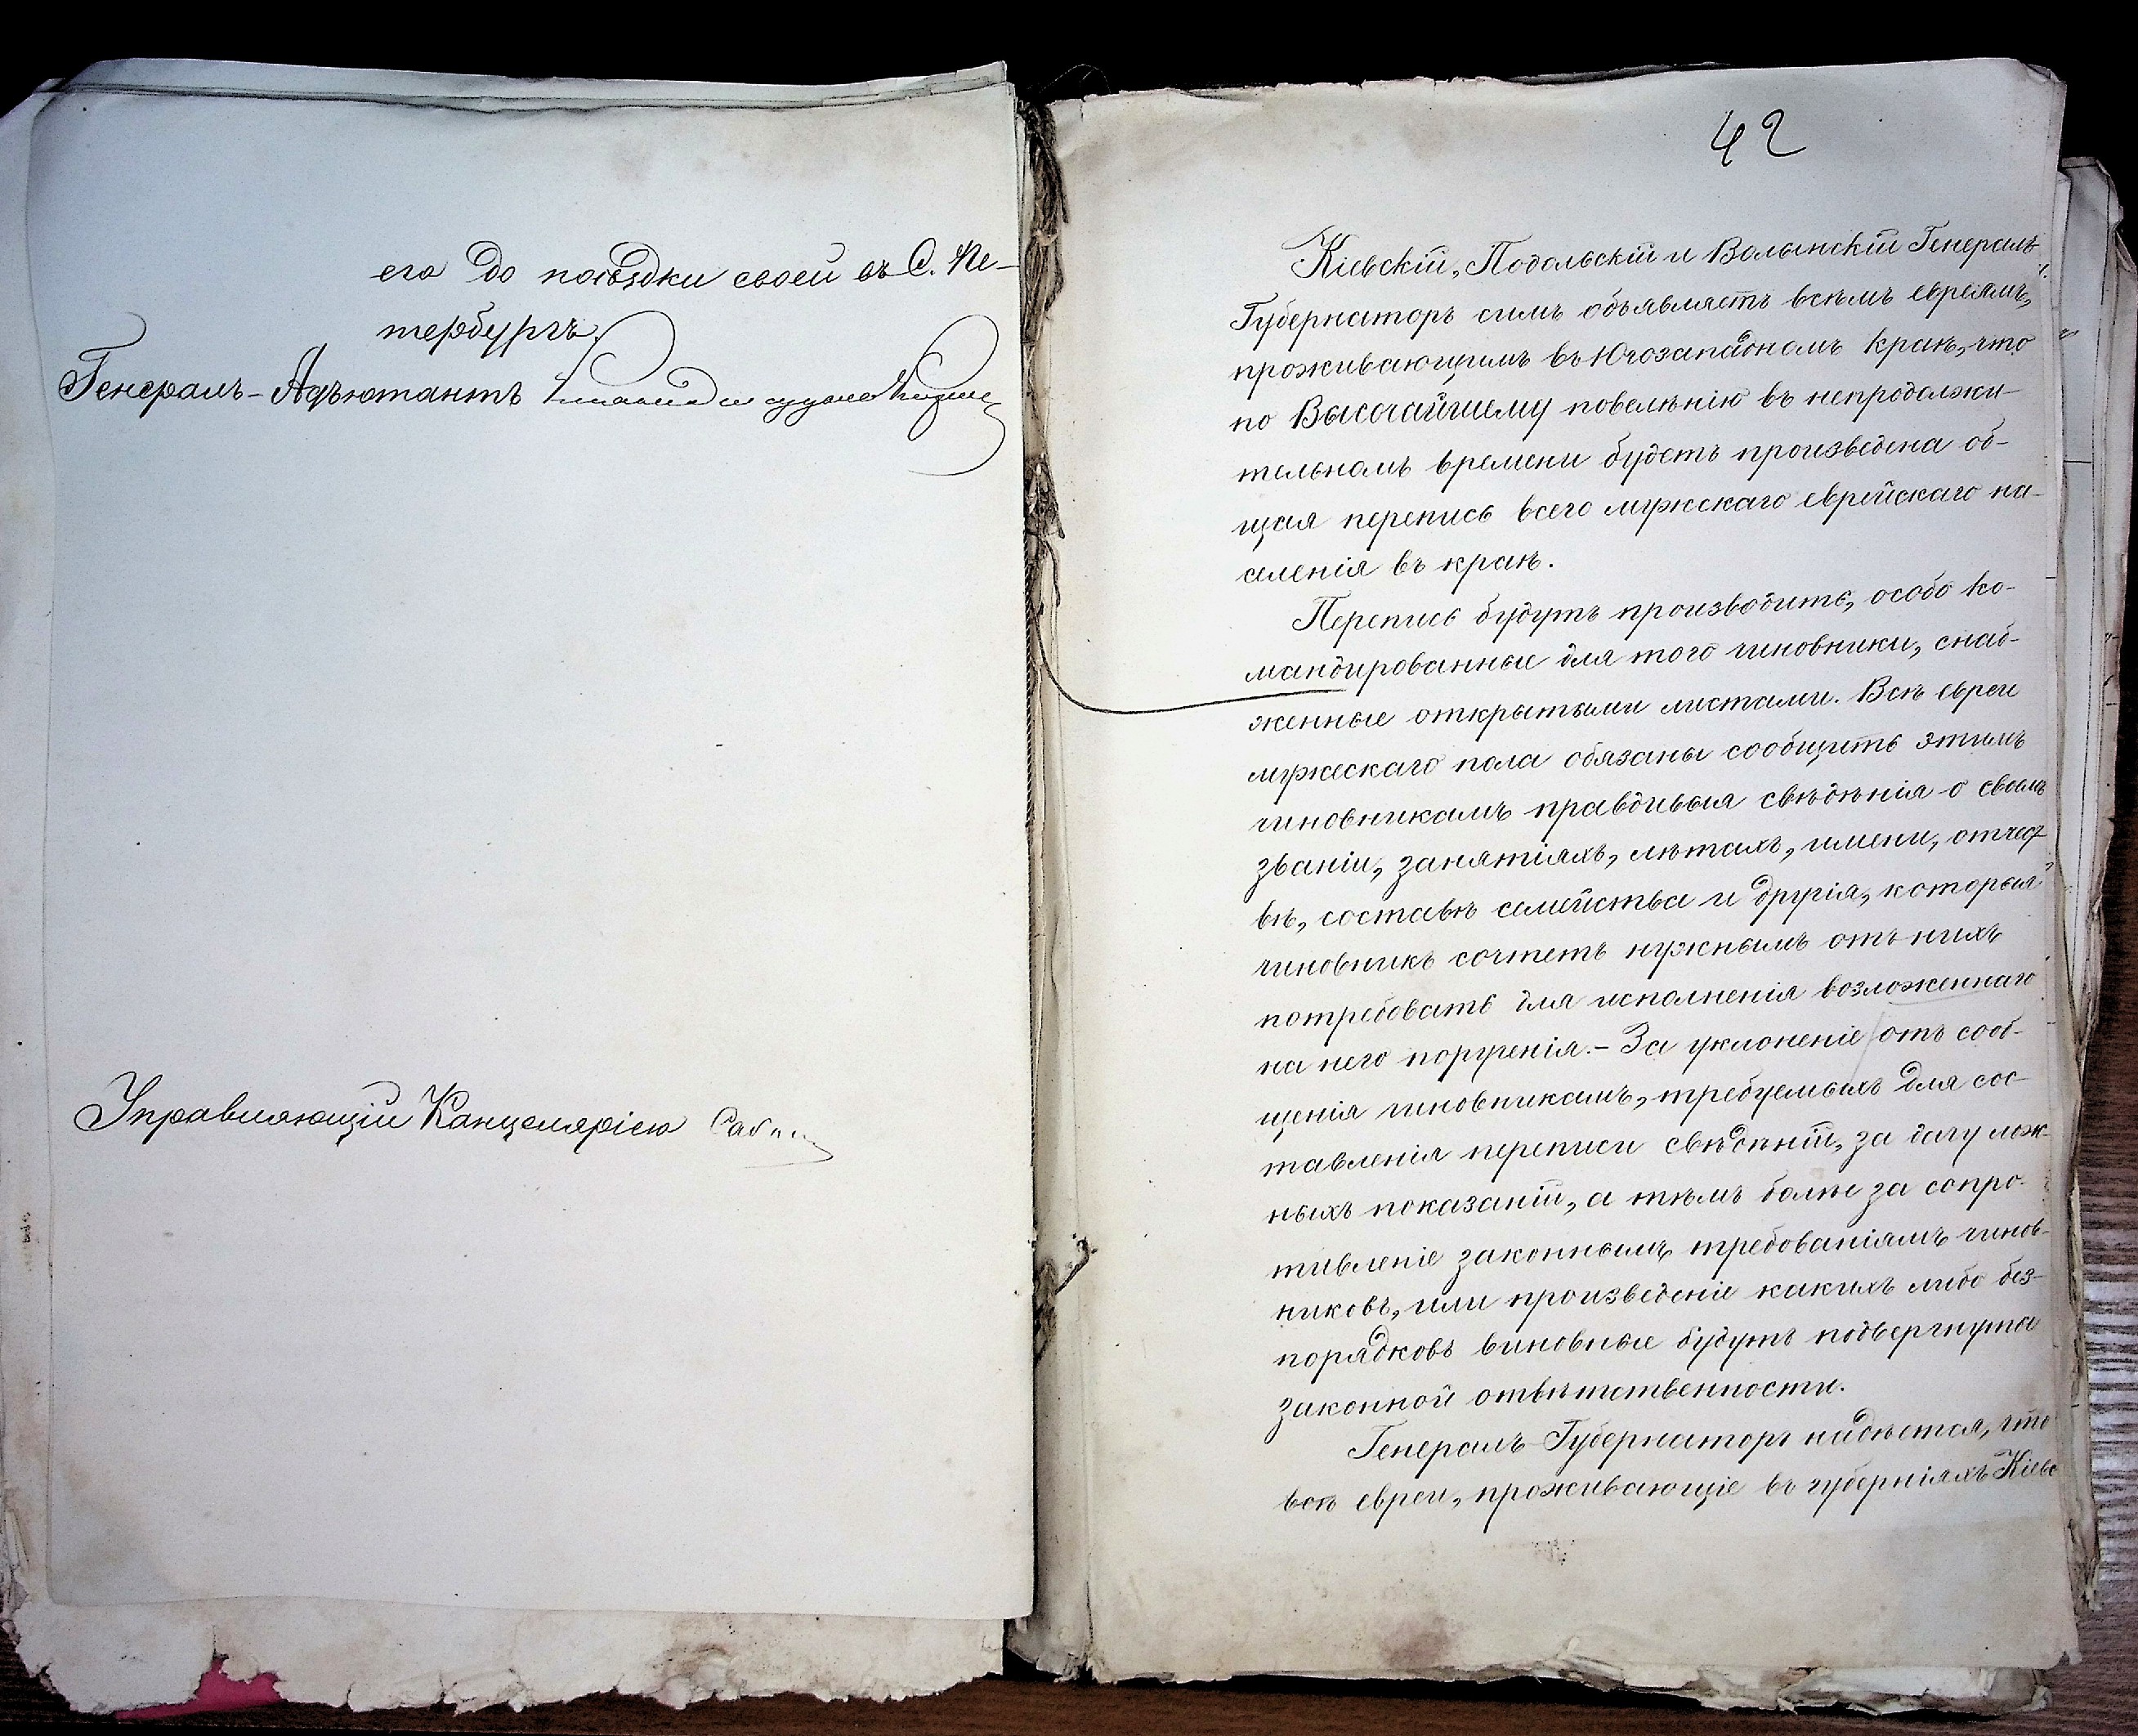 его до поѣздки своей въ С. Пе-
тербургъ.
Генералъ-Адъютантъ
Управляющій Канцеляріею
42
Кіевскій, Подольскій и Волынскій Генералъ-
Губернаторъ симъ объявляетъ всѣмъ евреямъ,
проживающимъ въ Югозападномъ краѣ, что
по Высочайшему повелѣнію въ непродолжи-
тельномъ времени будетъ произведена об-
щая перепись всего мужскаго еврейскаго на-
селенія въ краѣ.
Перепись будутъ производить, особо ко-
мандированные для того чиновники, снаб-
женные открытыми листами. Всѣ евреи
мужескаго пола обязаны сообщить этимъ
чиновникамъ правдивыя свѣдѣнія о своемъ
званіи, занятіяхъ, лѣтахъ, имени, отчест-
вѣ, составѣ семейства и другія, которыя
чиновникъ сочтетъ нужнымъ отъ нихъ
потребовать для исполненія возложеннаго
на него порученія.- За уклоненіе отъ сооб-
щенія чиновникамъ, требуемыхъ для сос-
тавленія переписи свѣдѣній, за дачу лож-
ныхъ показаній, а тѣмъ болѣе за сопро-
тивленіе законнымъ требованіямъ чинов-
никовъ, или произведеніе какихъ либо без-
порядковъ виновные будутъ подвергнуты
законной отвѣтственности.
Генералъ-Губернаторъ надѣется, что
всѣ евреи, проживающіе въ губерніяхъ Кіевс